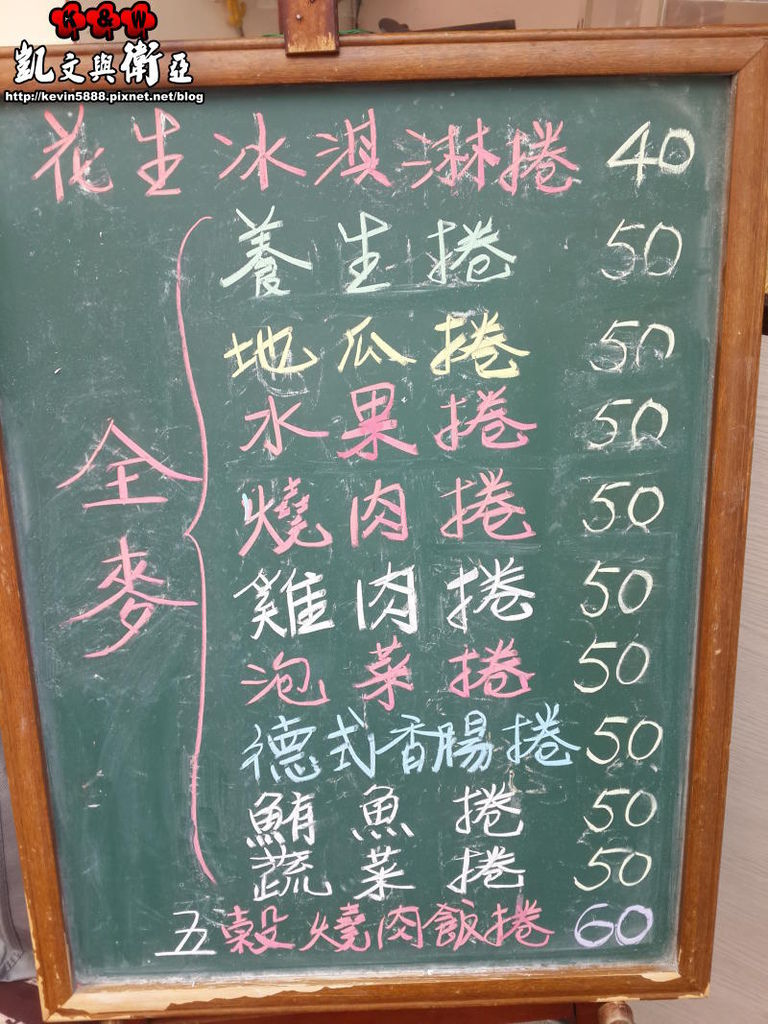 K&W
凱文與衛亞
http://kevin5888.pixnet.net/blog
花生冰淇淋捲 40
全麥
養生捲 50
地瓜捲 50
水果捲 50
燒肉捲 50
雞肉捲 50
泡菜捲 50
德式香腸捲 50
鮪魚捲 50
蔬菜捲 50
五穀燒肉飯捲 60